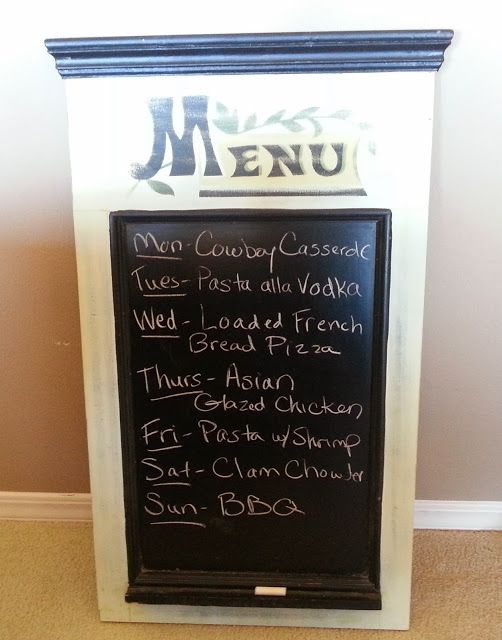 MENU
Mon - Cowboy Casserole
Tues - Pasta alla Vodka
Wed - Loaded French
Bread Pizza
Thurs - Asian
Glazed Chicken
Fri - Pasta w/ Shrimp
Sat - Clam Chowder
Sun - BBQ